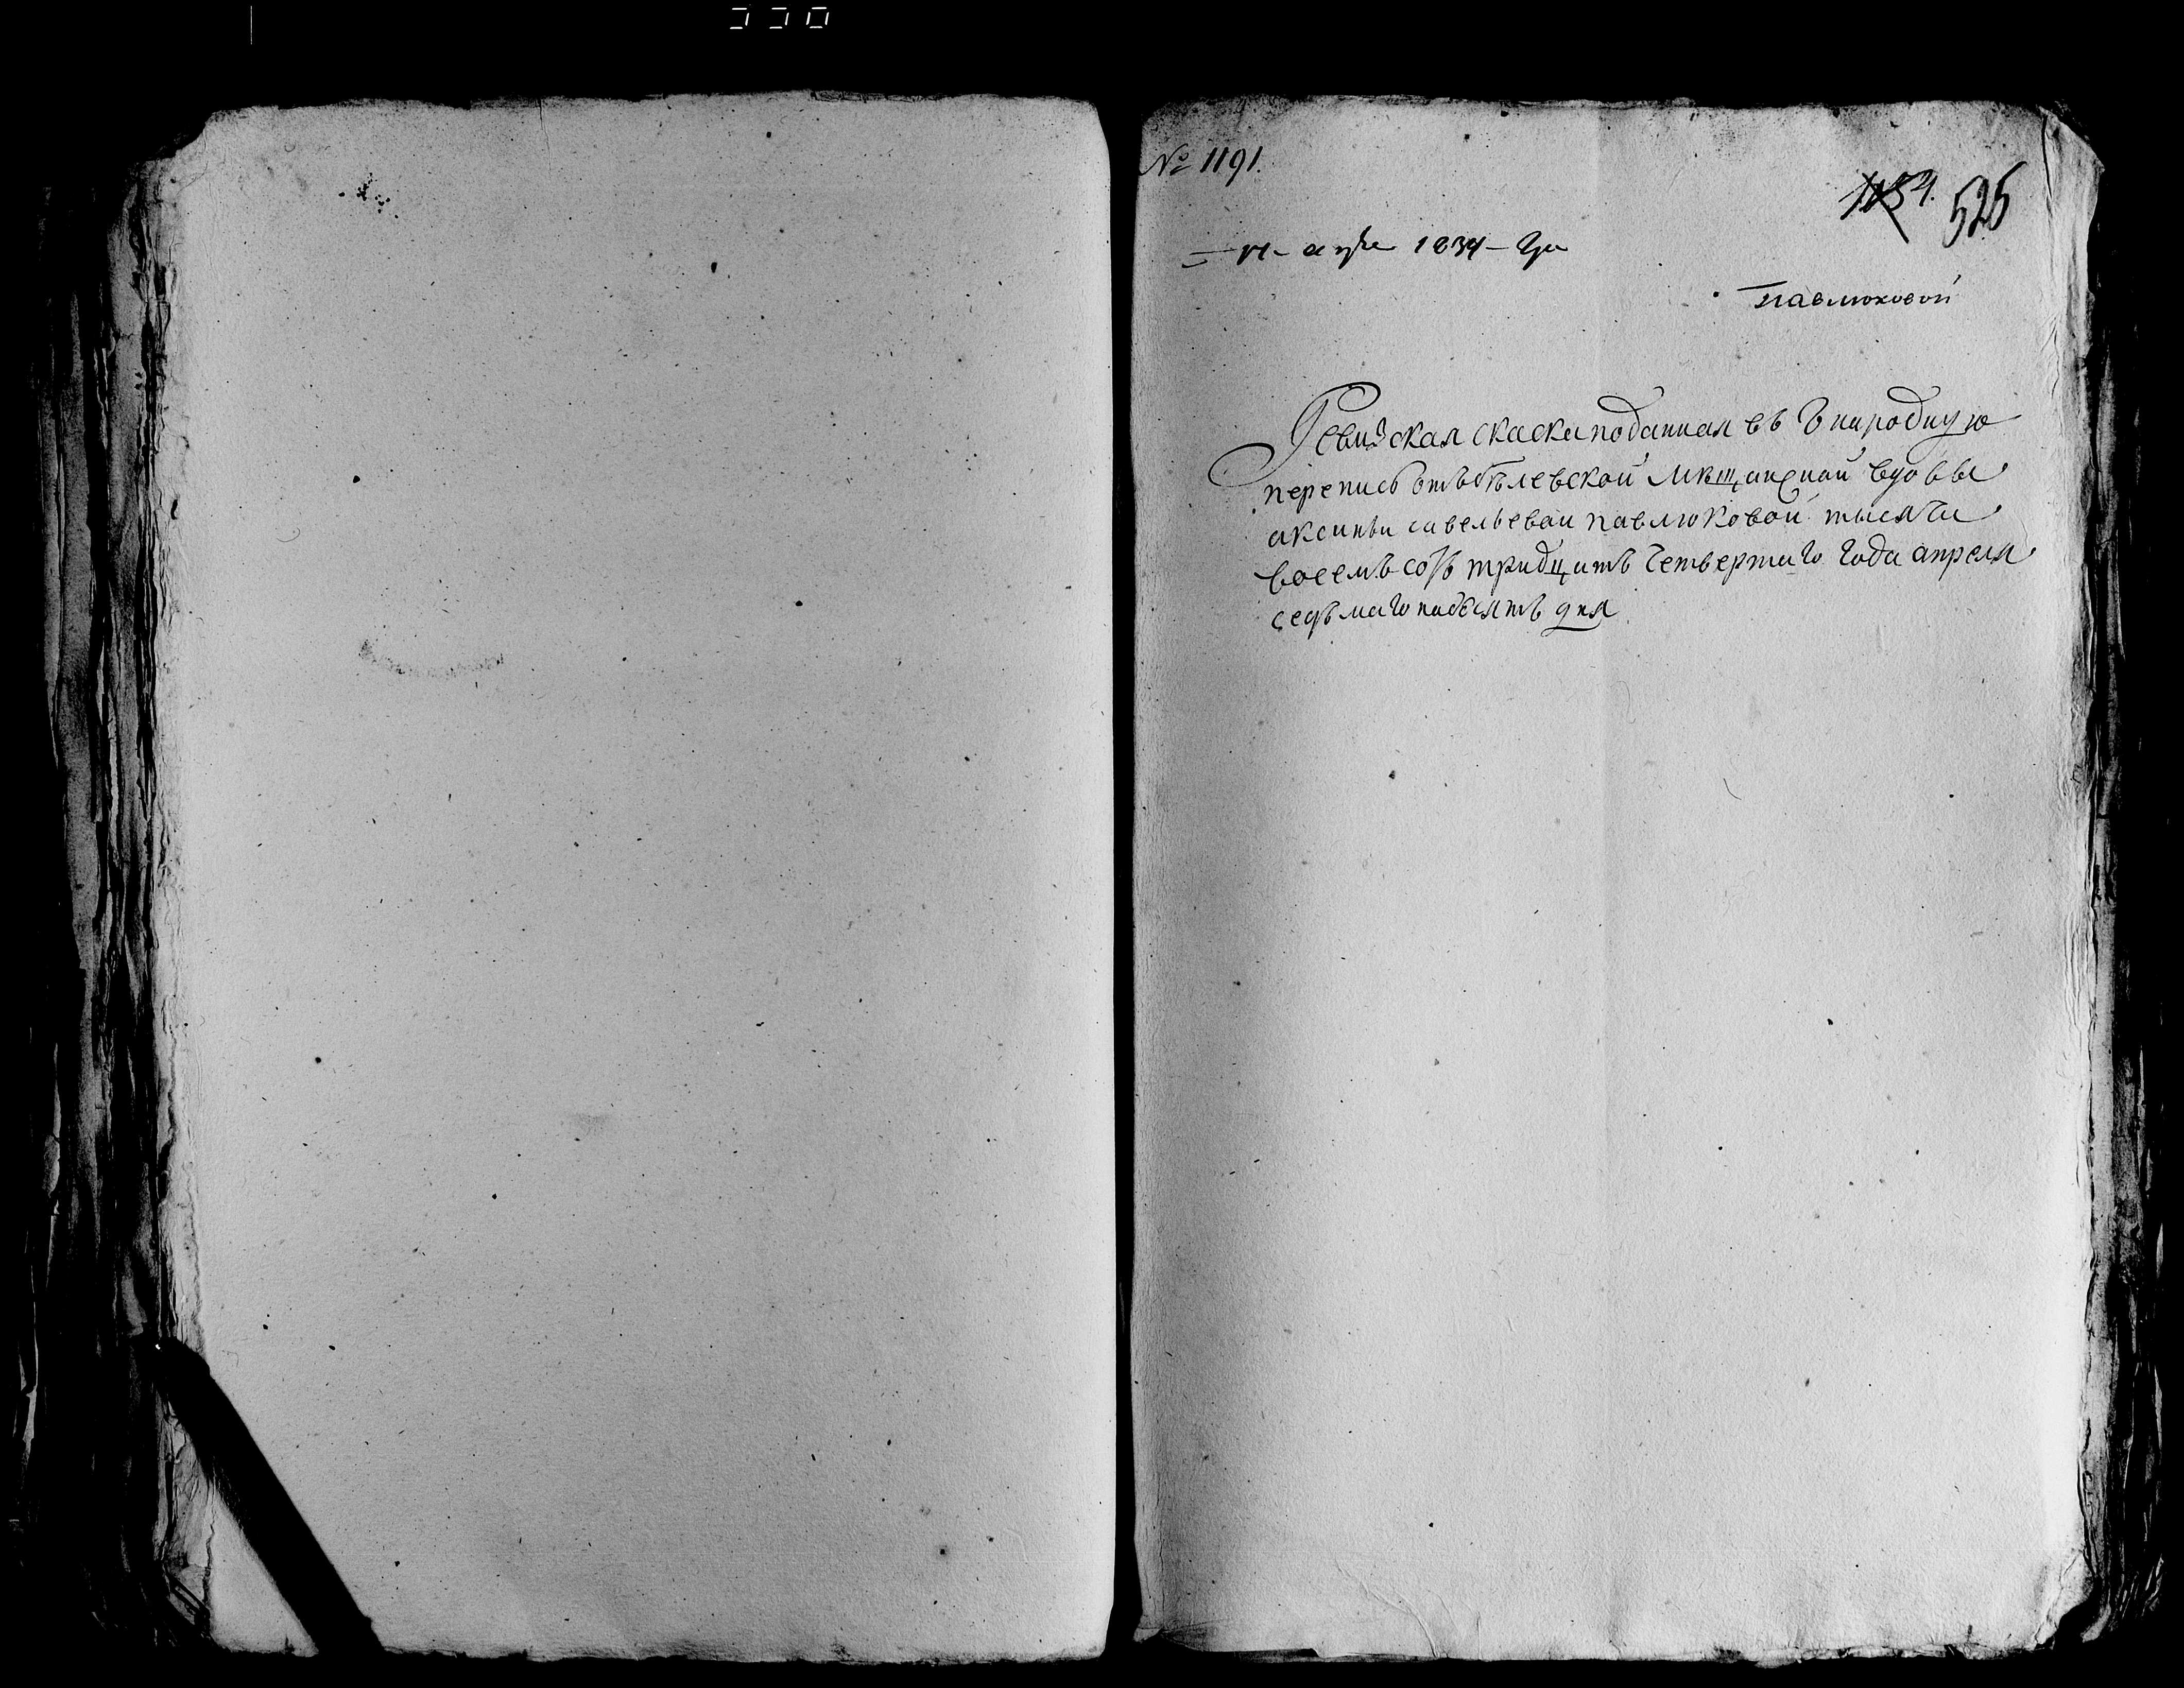 № 1191.
1154. 525
17 апре 1834 Го
Павлюковой
Ревизская скаска поданная въ народную
перепись отъ бѣлевской мѣщанской вдовы
аксиньи савельевой павлюковой тысяча
восемъ сотъ тридцать четвертаго года апреля
седьмаго надесять дня